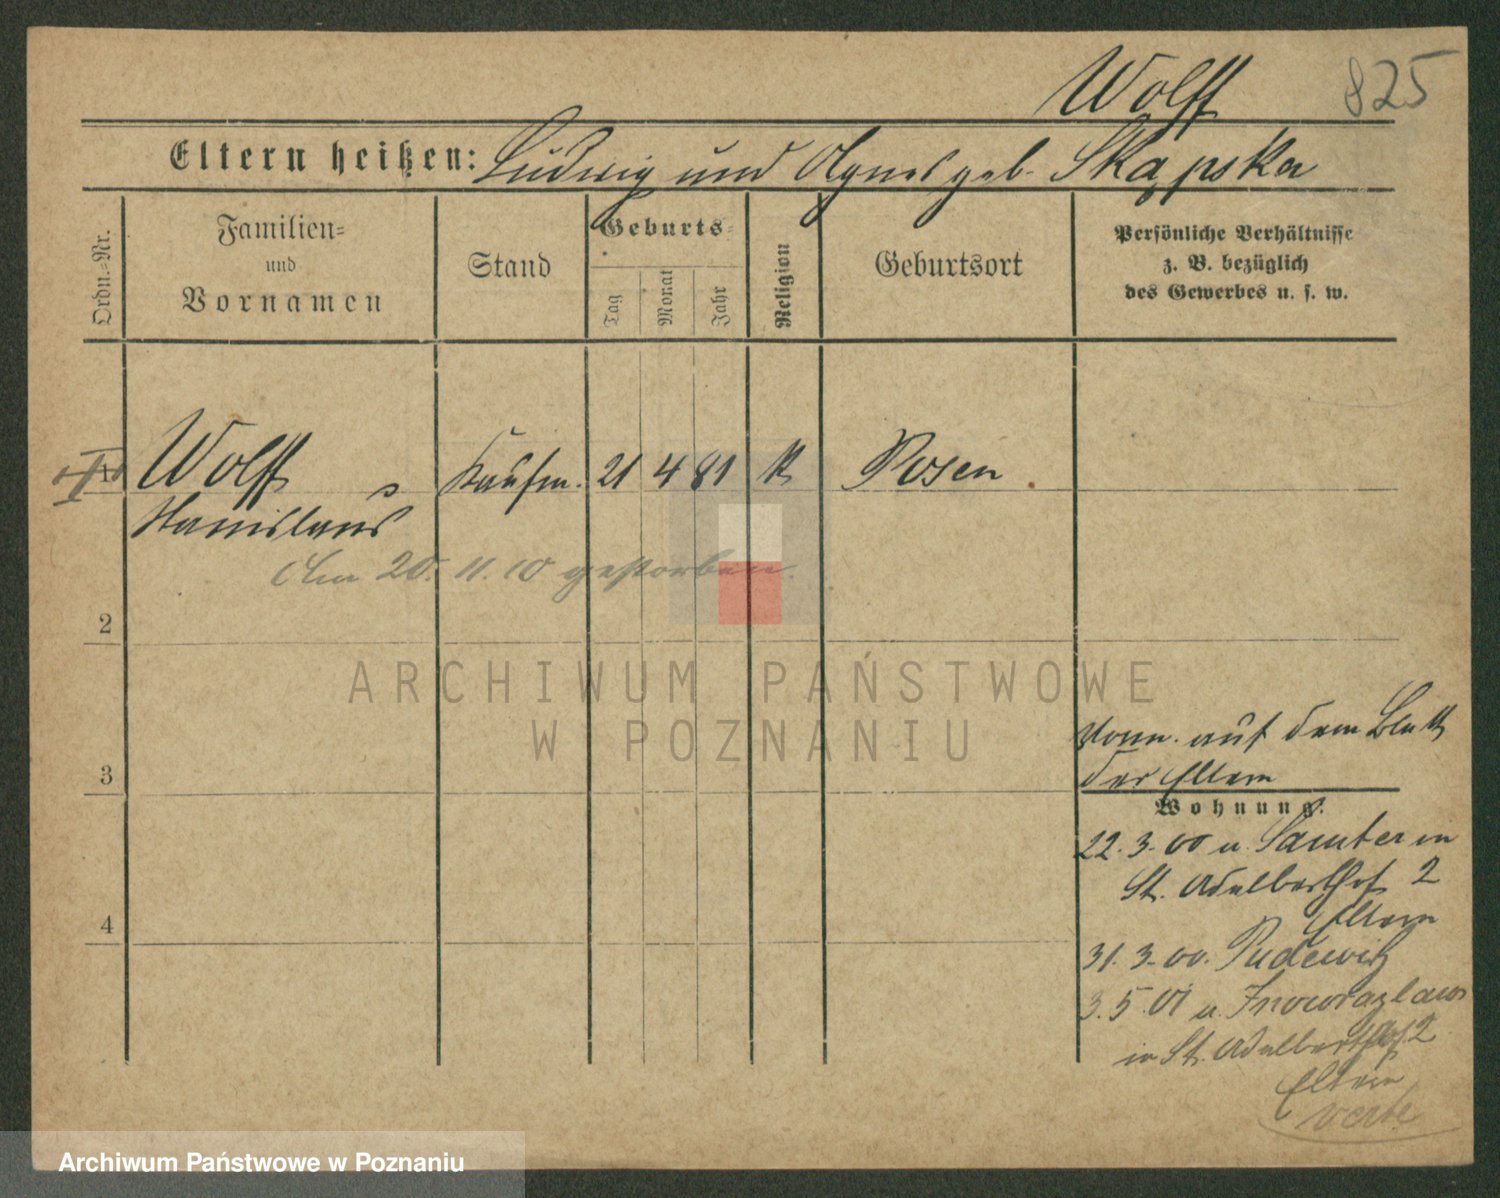 Wolff 825
Eltern heißen: Ludwig und Agnes geb. Skąpska
Ordn.=Nr.
Familien=
und
Vornamen
Stand
Geburts=
Tag
Monat
Jahr
Religion
Geburtsort
Persönliche Verhältnisse
z. B. bezüglich
des Gewerbes u. s. w.
Wolff Kaufm. 21 4 81 k Posen
Stanislaus
Am 20. 11. 10 gestorben.
2
ARCHIWUM PAŃSTWOWE
W POZNANIU
3
4
auf dem Blatt
der Eltern
Wohnung.
22. 3. 00 v. Samter in
St. Adalbertstr 2
Eltern
31. 3. 00. Pudewitz
3. 5. 01 v. Inowrazlaw
in St. Adalbertstr 2
Eltern
verte
Archiwum Państwowe w Poznaniu